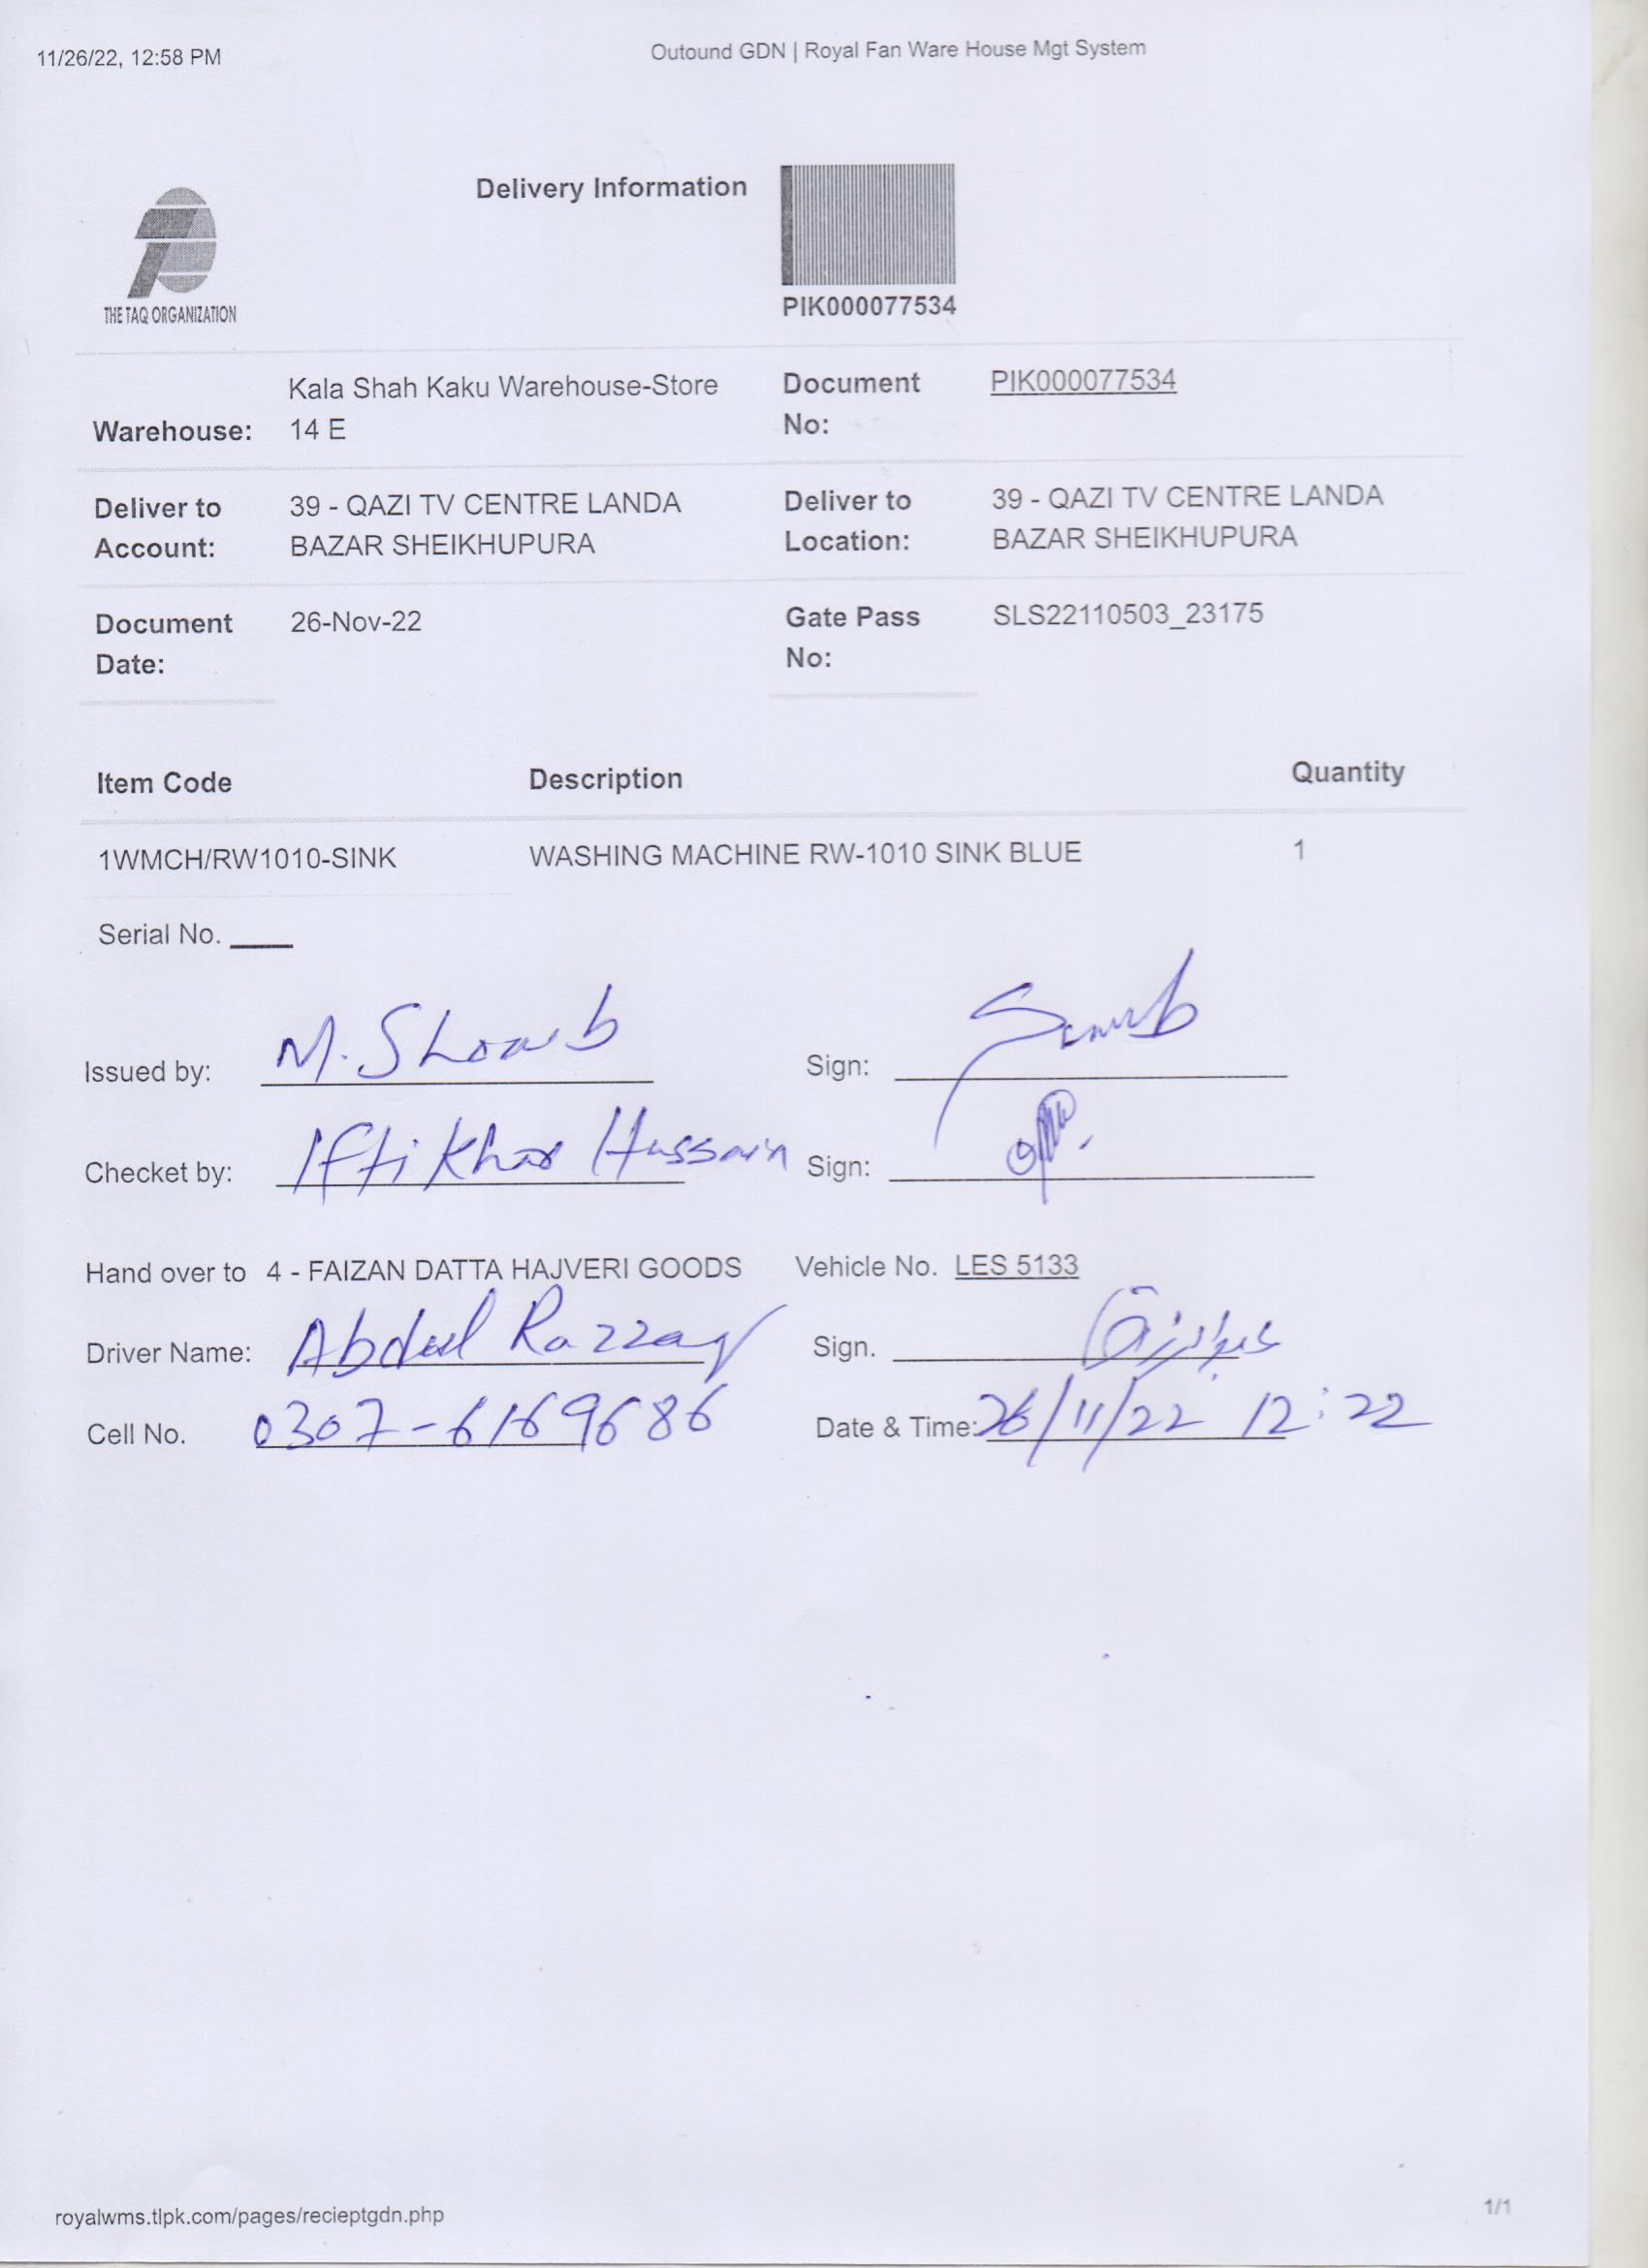 11/26/22, 12:58 PM Outound GDN | Royal Fan Ware House Mgt System
Delivery Information
THE TAQ ORGANIZATION
PIK000077534
Warehouse: Kala Shah Kaku Warehouse-Store 14 E Document No: PIK000077534
Deliver to Account: 39 - QAZI TV CENTRE LANDA BAZAR SHEIKHUPURA Deliver to Location: 39 - QAZI TV CENTRE LANDA BAZAR SHEIKHUPURA
Document Date: 26-Nov-22 Gate Pass No: SLS22110503_23175
Item Code Description Quantity
1WMCH/RW1010-SINK WASHING MACHINE RW-1010 SINK BLUE 1
Serial No.
Issued by: M. Shoaib Sign:
Checket by: Iftikhar Hussain Sign:
Hand over to 4 - FAIZAN DATTA HAJVERI GOODS Vehicle No. LES 5133
Driver Name: Abdul Razzaq Sign. عبدالرزاق
Cell No. 0307-6169686 Date & Time: 26/11/22 12:22
royalwms.tlpk.com/pages/recieptgdn.php 1/1